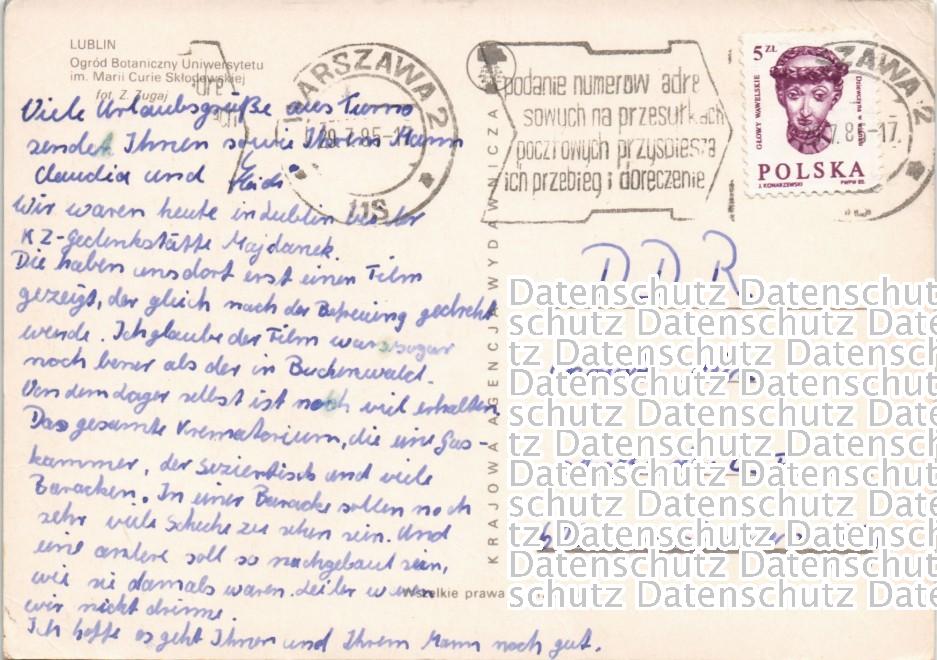 LUBLIN
Ogród Botaniczny Uniwersytetu
im. Marii Curie Skłodowskiej
fot. Z. Zugaj
Viele Urlaubsgrüße aus
sendet Ihnen sowie Ihrem Mann
Claudia und Heidi
Wir waren heute in Lublin bei der
KZ-Gedenkstätte Majdanek.
Die haben uns dort erst einen Film
gezeigt, der gleich nach der Befreiung gedreht
wurde. Ich glaube der Film war sogar
noch besser als der in Buchenwald.
Von dem Lager selbst ist noch viel erhalten.
Das gesamte Krematorium, die eine Gas-
kammer, der Seziertisch und viele
Baracken. In einer Baracke sollen noch
sehr viele Schuhe zu sehen sein. Und
eine andere soll so nachgebaut sein,
wie sie damals waren. Leider waren
wir nicht drinne.
Ich hoffe es geht Ihnen und Ihrem Mann noch gut.
KRAJOWA AGENCJA WYDAWNICZA
Wszelkie prawa
WARSZAWA 2
podanie numerów adre
sowych na przesyłkach
pocztowych przyspiesza
ich przebieg i doręczenie
5 ZŁ
GŁOWY WAWELSKIE
POLSKA
J. KONARZEWSKI
PWPW 85
ZAWA 2
DDR
Datenschutz Datenschut
schutz Datenschutz Date
tz Datenschutz Datensch
Datenschutz Datenschut
schutz Datenschutz Date
tz Datenschutz Datensch
Datenschutz Datenschut
schutz Datenschutz Date
tz Datenschutz Datensch
Datenschutz Datenschut
schutz Datenschutz Date